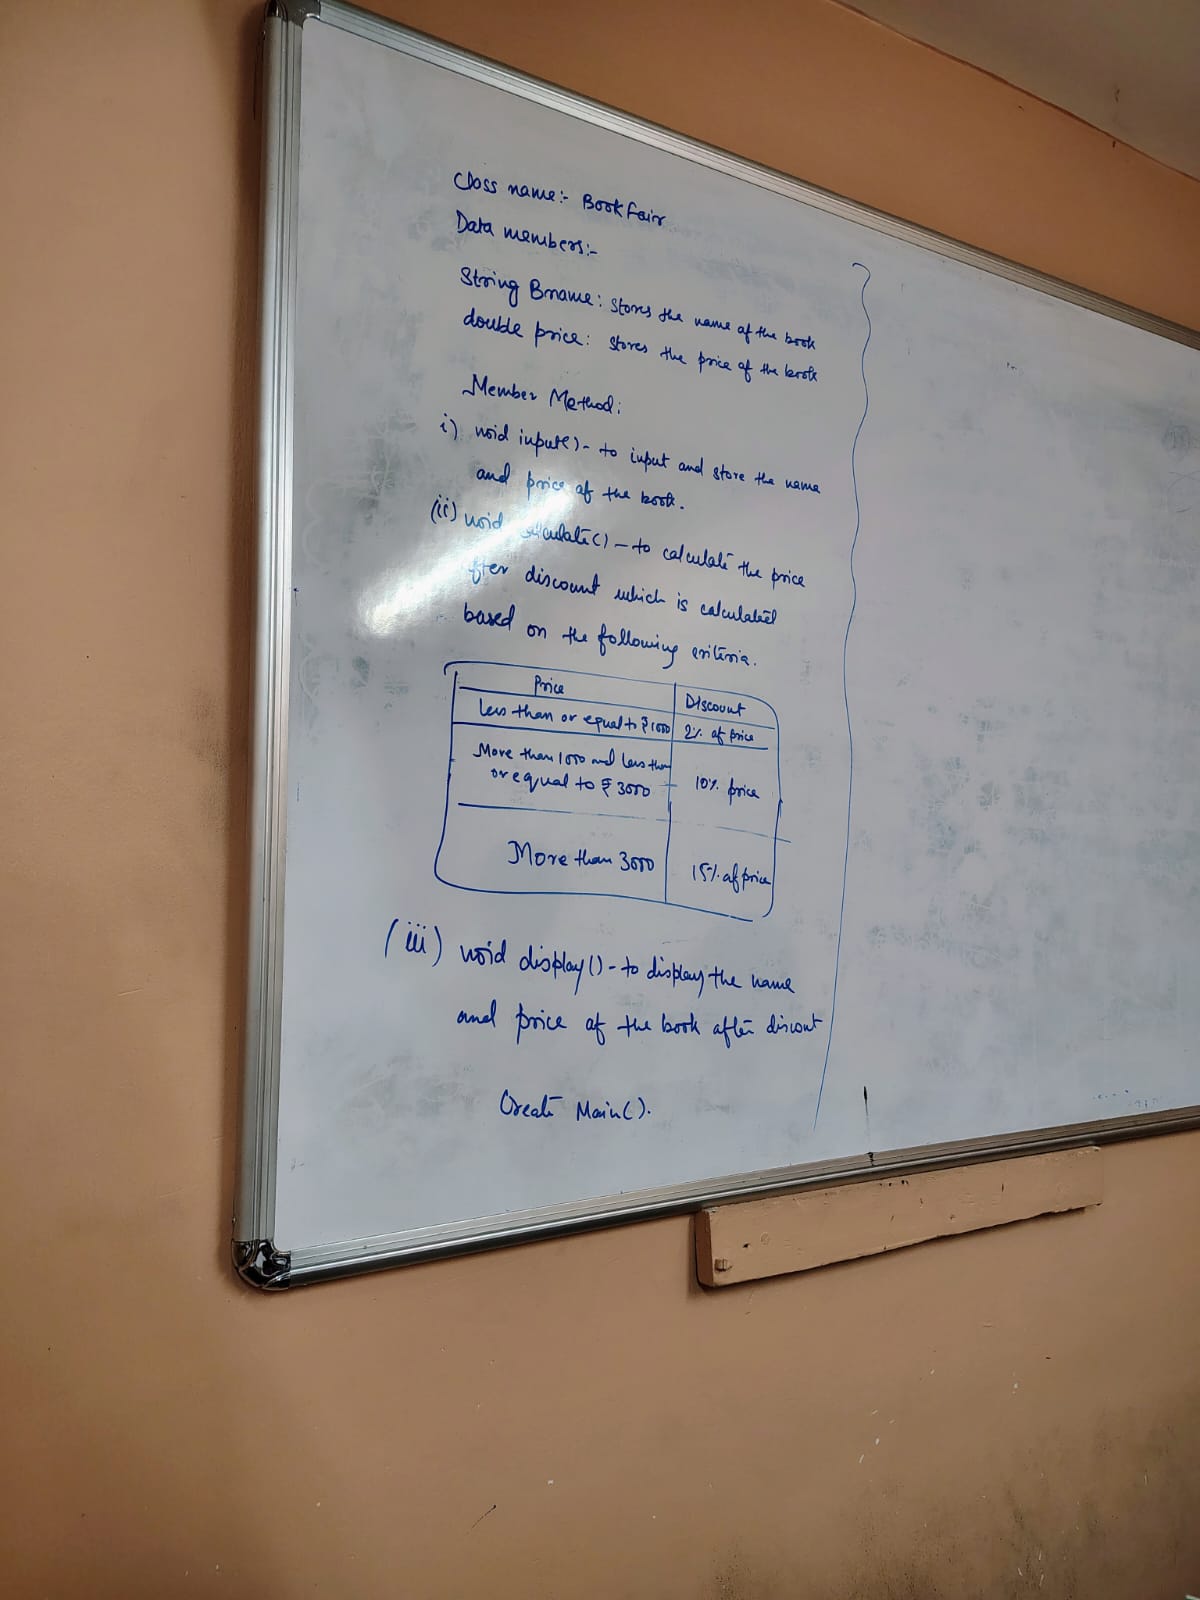 Class name:- BookFair
Data members:-
String Bname: stores the name of the book
double price: stores the price of the book
Member Method:
i) void input()- to input and store the name
and price of the book.
(ii) void calculate() – to calculate the price
after discount which is calculated
based on the following criteria.
Price Discount
Less than or equal to ₹1000 2% of price
More than 1000 and less than
or equal to ₹3000 10% price
More than 3000 15% of price
(iii) void display() - to display the name
and price of the book after discont
Create Main().